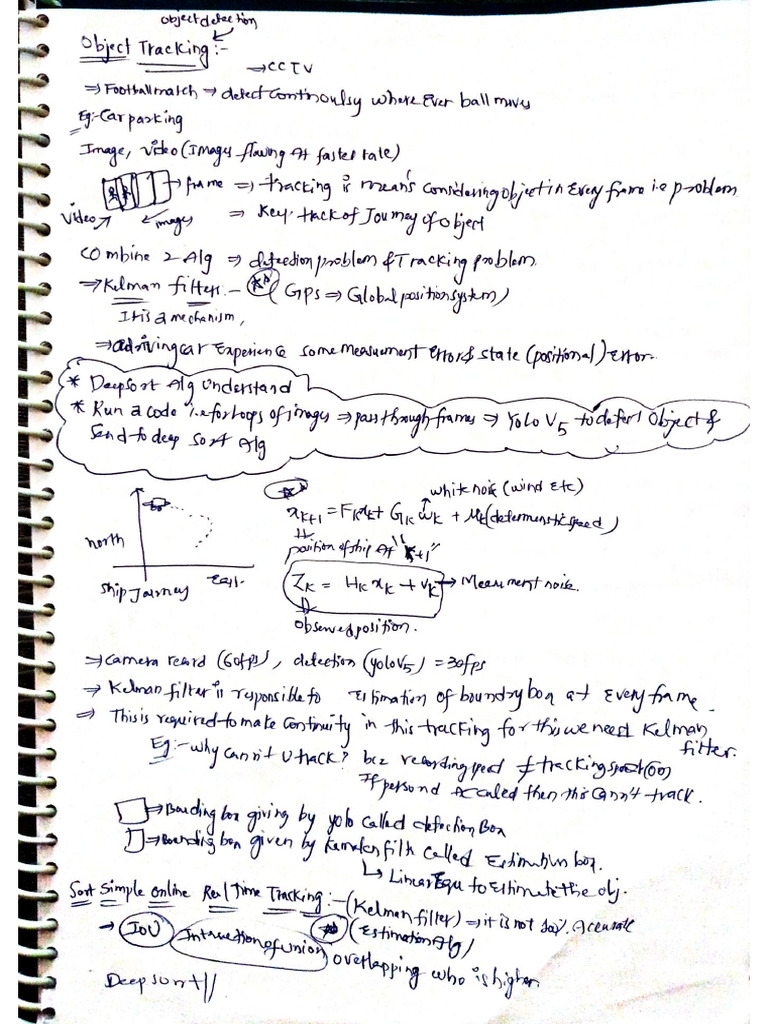 object detection
Object Tracking :-
→ CCTV
⇒ Football match → detect continoulsy where Ever ball moves
Eg:- Car parking
Image, video (Images flowing At faster rate)
→ frame ⇒ tracking is means considering object in Every frame i.e problem
video images ⇒ Keep track of Journey of object
Combine 2 Alg ⇒ detection problem & Tracking problem
→ Kelman filters :- (GPS ⇒ Global position system)
It is a mechanism,
⇒ a driving car Experience some measurement Error & state (positional) Error.
* Deepsort Alg Understand
* Run a code i.e for loops of images ⇒ pass through frames ⇒ YOLO V5 to detect object &
Send to deep sort Alg
white noise (wind Etc)
x_{k+1} = F_k x_k + G_k w_k + M_k (determenstic speed)
north
position of ship At "k+1"
East
ship Journey
Z_k = H_k x_k + v_k → Measurment noise.
observed position.
⇒ Camera record (60fps), detection (yolo V5) = 30fps
→ Kelman filter is responsible to estimation of boundry box at Every frame.
⇒ This is required to make continuity in this tracking for this we need Kelman
filter.
Eg:- why cann't u track? bcz recording speed ≠ tracking speed
If person
then this cann't track.
⇒ Bounding box giving by yolo called detection Box
⇒ Bounding box given by Kemalen filth called Estimation box.
↳ Linear Equ to Estimate the obj.
Sort Simple online Real Time Tracking :- (Kelman filter) ⇒ it is not Accurate
→ IOU Intraction of union (Estimation Alg)
overlapping who is higher.
Deep sort //